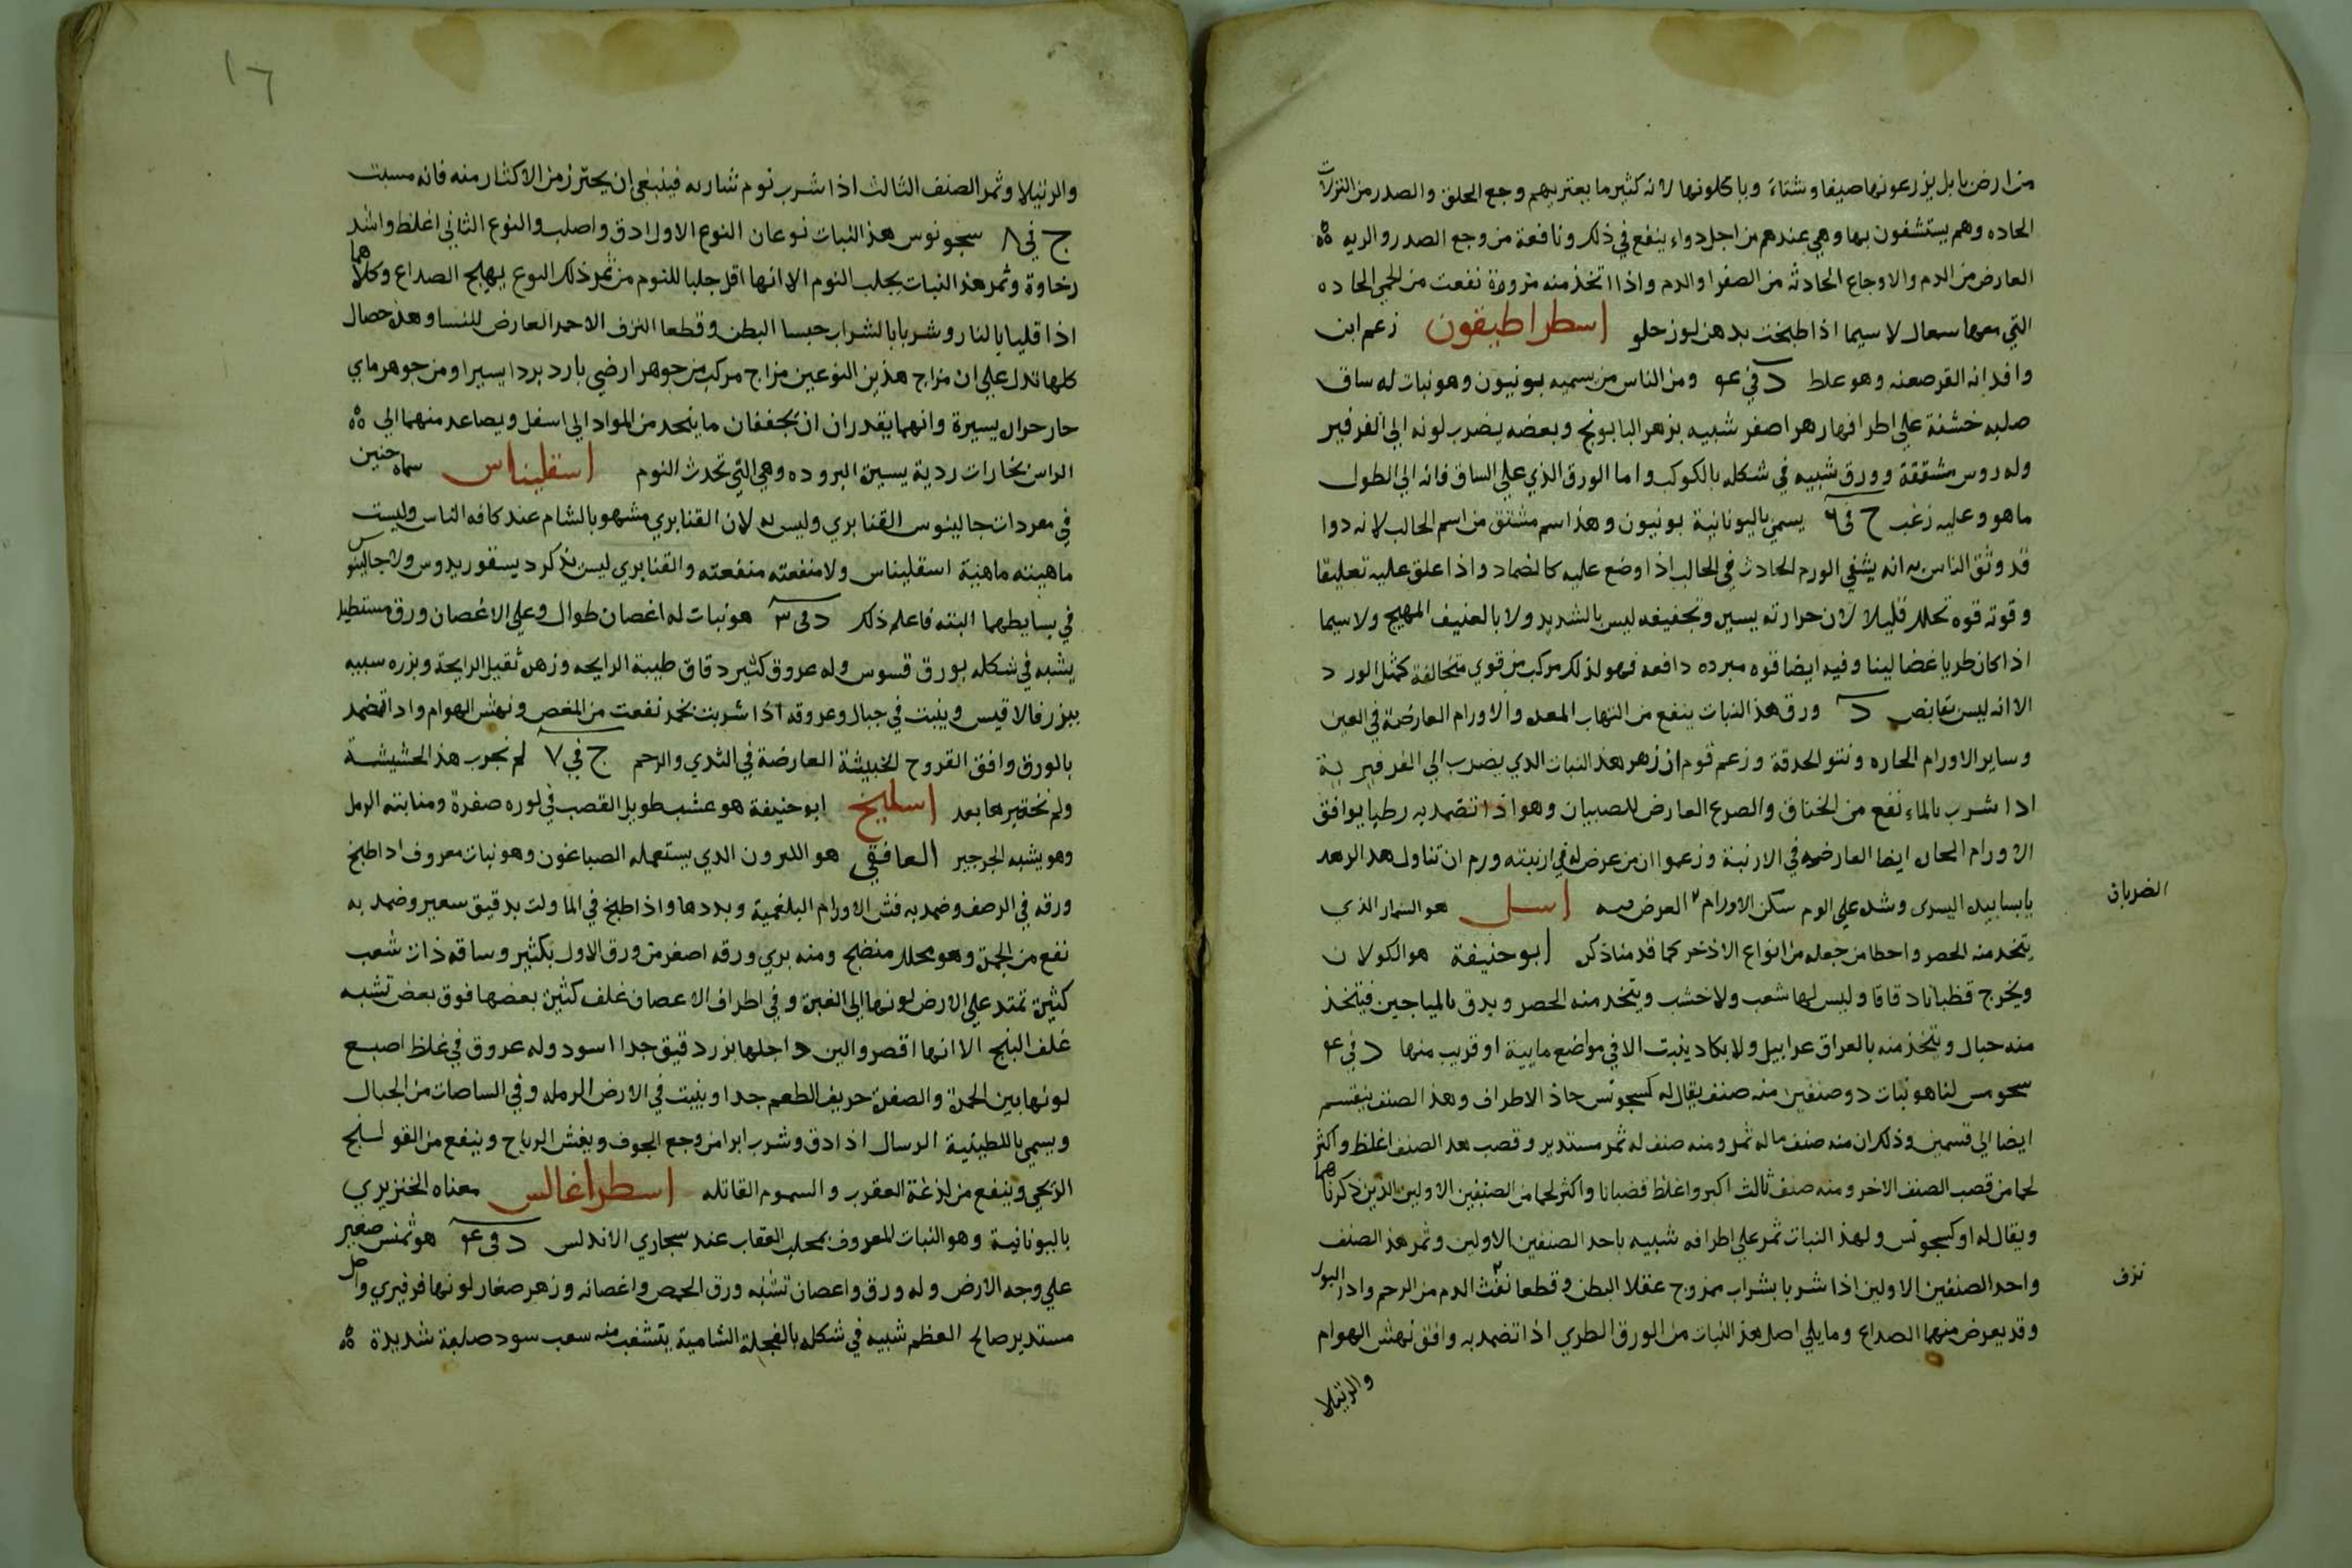 من ارض بابل يزرعونها صيفا وشتاء وياكلونها لانه كثير ما يعتريهم وجع الحلق والصدر من النزلات
الحاده وهم يستشفون بها وهي عندهم من اجل دواء ينفع في ذلك ونافعة من وجع الصدر والريه
العارض من الدم والاوجاع الحادثه من الصفرا والدم واذا اتخذ منه مزورة نفعت من الحمي الحاده
التي معها سعال لا سيما اذا طبخت بدهن لوز حلو اسطراطيقون زعم ابن
وافد انه القرصعنه وهو غلط د في ع۴ ومن الناس من يسميه بونيون وهو نبات له ساق
صلبه خشنة علي اطرافها زهر اصفر شبيه بزهر البابونج وبعضه يضرب لونه الي الفرفير
وله روس مشققة وورق شبيه في شكله بالكوكب واما الورق الذي علي الساق فانه الي الطول
ماهو وعليه زغب ج في ٦ يسمي باليونانية بونيون وهذا اسم مشتق من اسم الحالب لانه دوا
قد وثق الناس به انه يشفي الورم الحادث في الحالب اذا وضع عليه كالضماد واذا علق عليه تعليقا
وقوته قوه تحلل قليلا لان حرارته يسيره وتجفيفه ليس بالشديد ولا بالعنيف المهيج ولا سيما
اذا كان طريا غضا لينا وفيه ايضا قوه مبرده دافعه فهو لذلك مركب من قوي متخالفة كمثل الورد
الا انه ليس بقابض د ورق هذا النبات ينفع من التهاب المعده والاورام العارضة في العين
وساير الاورام الحاره ونتو الحدقة وزعم قوم ان زهر هذا النبات الذي يضرب الي الفرفيرية
اذا شرب بالماء نفع من الخناق والصرع العارض للصبيان وهو اذا تضمد به رطبا يوافق
الاورام الحاره ايضا العارضه في الارنبة وزعموا ان من عرض له في ارنبته ورم ان تناول هذا الزهر
يابسا بيده اليسرى وشده علي الورم سكن الاورام العرض فيه اسل هو السمار الذي
الضربان
يتخذ منه الحصر واخطا من جعله من انواع الاذخر كما قدمنا ذكره ابو حنيفة هو الكولان
ويخرج قضبانا دقاقا وليس لها شعب ولا خشب ويتخذ منه الحصر ويدق بالمياجين فيتخذ
منه حبال ويتخذ منه بالعراق غرابيل ولا يكاد ينبت الا في مواضع مايية او قريب منها د في ع۴
لنا هو نبات ذو صنفين منه صنف يقال له حاد الاطراف وهذا الصنف ينقسم
ايضا الي قسمين وذلك ان منه صنف ماله ثمر ومنه صنف له ثمر مستدير وقصب هذا الصنف اغلظ واكثر
لحما من قصب الصنف الاخر ومنه صنف ثالث اكبر واغلظ قضبانا واكثر لحما من الصنفين الاولين الذين ذكرناهما
ويقال له ولهذا النبات ثمر علي اطرافه شبيه باحد الصنفين الاولين وثمر هذا الصنف
واحد الصنفين الاولين اذا شربا بشراب ممزوج عقلا البطن وقطعا نفث الدم من الرحم وادر البول
نزف
وقد يعرض منهما الصداع وما يلي اصل هذا النبات من الورق الطري اذا تضمد به وافق نهش الهوام
والرتيلا
١٦
والرتيلا وثمر الصنف الثالث اذا شرب نوم شاربه فينبغي ان يحترز من الاكثار منه فانه مسبت
ج في ٨ سجونوس هذا النبات نوعان النوع الاول ادق واصلب والنوع الثاني اغلظ واشد
رخاوة وثمر هذا النبات يجلب النوم الا انها اقل جلبا للنوم من ثمر ذلك النوع يهيج الصداع وكلاهما
اذا قليا بالنار وشربا بالشراب حبسا البطن وقطعا النزف الاحمر العارض للنسا وهذه خصال
كلها تدل علي ان مزاج هذين النوعين مزاج مركب من جوهر ارضي بارد بردا يسيرا ومن جوهر ماي
حار حراره يسيرة وانهما يقدران ان يجففان ما ينحدر من المواد الي اسفل ويصاعد منهما الي
الراس بخارات ردية يسيرة البروده وهي التي تحدث النوم اسقليناس سماه حنين
في مفردات جالينوس القنابري وليس به لان القنابري مشهور بالشام عند كافه الناس وليست
ماهيته ماهية اسقليناس ولا منفعته منفعته والقنابري ليس يذكره ديسقوريدوس ولا جالينوس
في بسايطهما البته فاعلم ذلك د في ٣ هو نبات له اغصان طوال وعلي الاغصان ورق مستطيل
يشبه في شكله بورق قسوس وله عروق كثير دقاق طيبة الرايحه وزهره ثقيل الرايحة وبزره شبيه
ببزر فالاقيس وينبت في جبال وعروقه اذا شربت بخمر نفعت من المغص ونهش الهوام واذا تضمد
بالورق وافق القروح الخبيثة العارضة في الثدي والرحم ج في ٧ لم نجرب هذه الحشيشة
ولم نختبرها بعد اسليخ ابو حنيفة هو عشب طويل القصب في لونه صفرة ومنابته الرمل
وهو يشبه الجرجير الغافقي هو الليرون الذي يستعمله الصباغون وهو نبات معروف اذا طبخ
ورقه في الرصف وضمد به فش الاورام البلغمية وبددها واذا طبخ في الما ولت بدقيق شعير وضمد به
نفع من الحمرة وهو محلل منضج ومنه بري ورقه اصغر من ورق الاول بكثير وساقه ذات شعب
كثيرة تمتد علي الارض لونها الي الغبرة وفي اطراف الاغصان غلف كثيرة بعضها فوق بعض تشبه
غلف البنج الا انها اقصر والين داخلها بزر دقيق جدا اسود وله عروق في غلظ اصبع
لونها بين الحمرة والصفرة حريف الطعم جدا وينبت في الارض الرمله وفي الساحات من الجبال
ويسمي باللطينية الرسال اذا دق وشرب ابرا من وجع الجوف ويفش الرياح وينفع من القولنج
الريحي وينفع من لدغة العقرب والسموم القاتله اسطراغالس معناه الخنزيري
باليونانية وهو النبات المعروف بمخلب العقاب عند شجاري الاندلس د في ع۴ هو تمنس صغير
علي وجه الارض وله ورق واغصان تشبه ورق الحمص واغصانه وزهر صغار لونها فرفيري واصل
مستدير صالح العظم شبيه في شكله بالفجلة الشامية يتشعب منه شعب سود صلبة شديدة